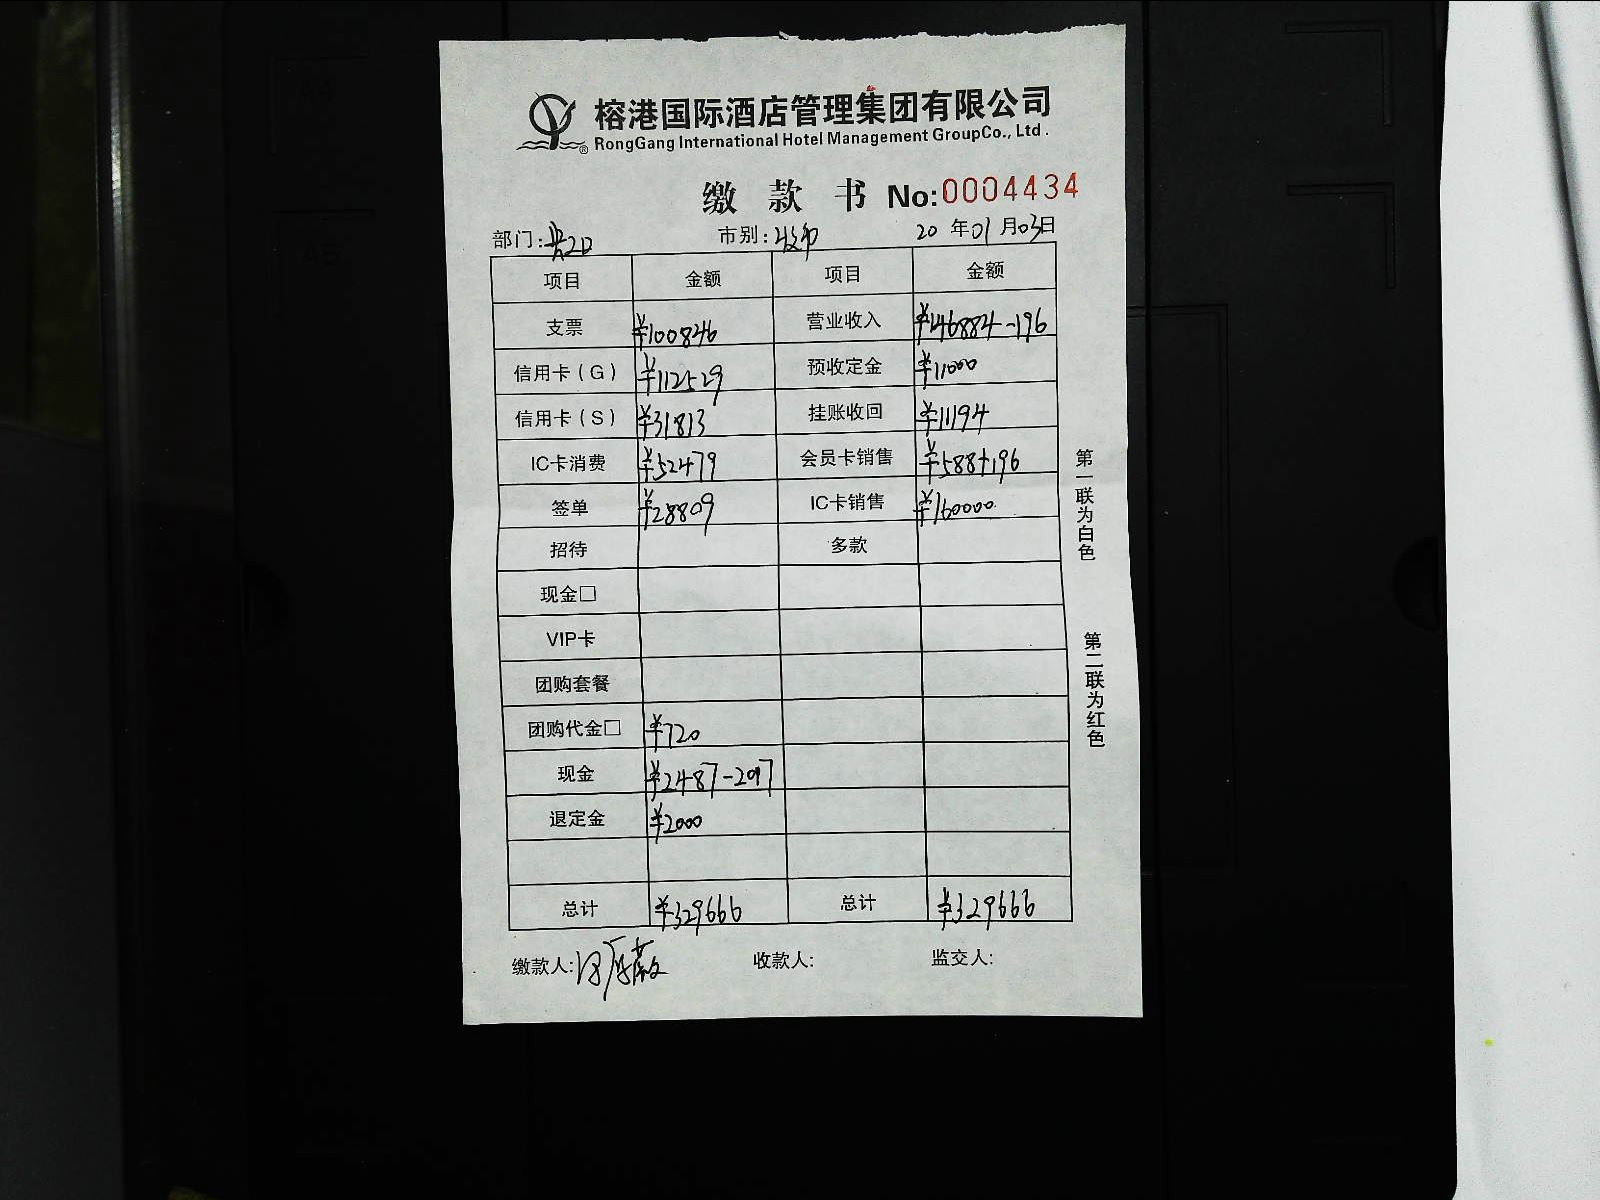 榕港国际酒店管理集团有限公司
RongGang International Hotel Management GroupCo., Ltd.
缴款书 No:0004434
部门: 市别: 20年01月03日
项目 金额 项目 金额
支票 ¥100846 营业收入 ¥146884-196
信用卡(G) ¥112529 预收定金 ¥11000
信用卡(S) ¥31813 挂账收回 ¥11194
IC卡消费 ¥52479 会员卡销售 ¥588+196
签单 ¥28809 IC卡销售 ¥160000
招待 多款
现金□
VIP卡
团购套餐
团购代金□ ¥720
现金 ¥2487-2017
退定金 ¥2000
总计 ¥329666 总计 ¥329666
缴款人: 收款人: 监交人:
第一联为白色
第二联为红色